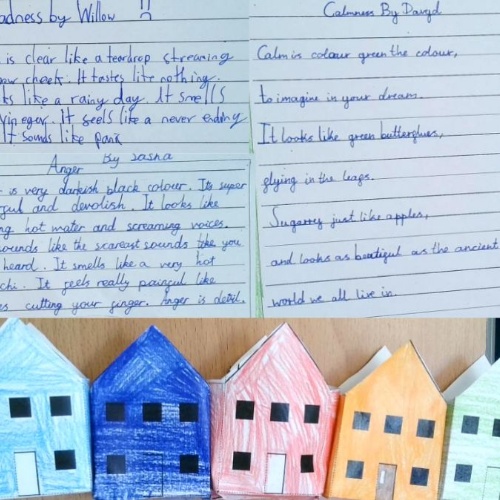 adness by Willow !!
is clear like a teardrop streaming
cheek. It tastes like nothing.
ks like a rainy day. It smells
vinegar. It feels like a never ending
It sounds like panic
Anger By Sasha
is very darkish black colour. Its super
ful and devolish. It looks like
ng hot water and screaming voices.
ounds like the scareast sounds like you
heard. It smells like a very hot
chi. It feels really painful like
es cutting your finger. Anger is devil.
Calmness By David
Calm is colour green the colour,
to imagine in your dream.
It looks like green butterglies,
flying in the leafs.
Sugarrey just like apples,
and looks as beatiful as the ancient
world we all live in.